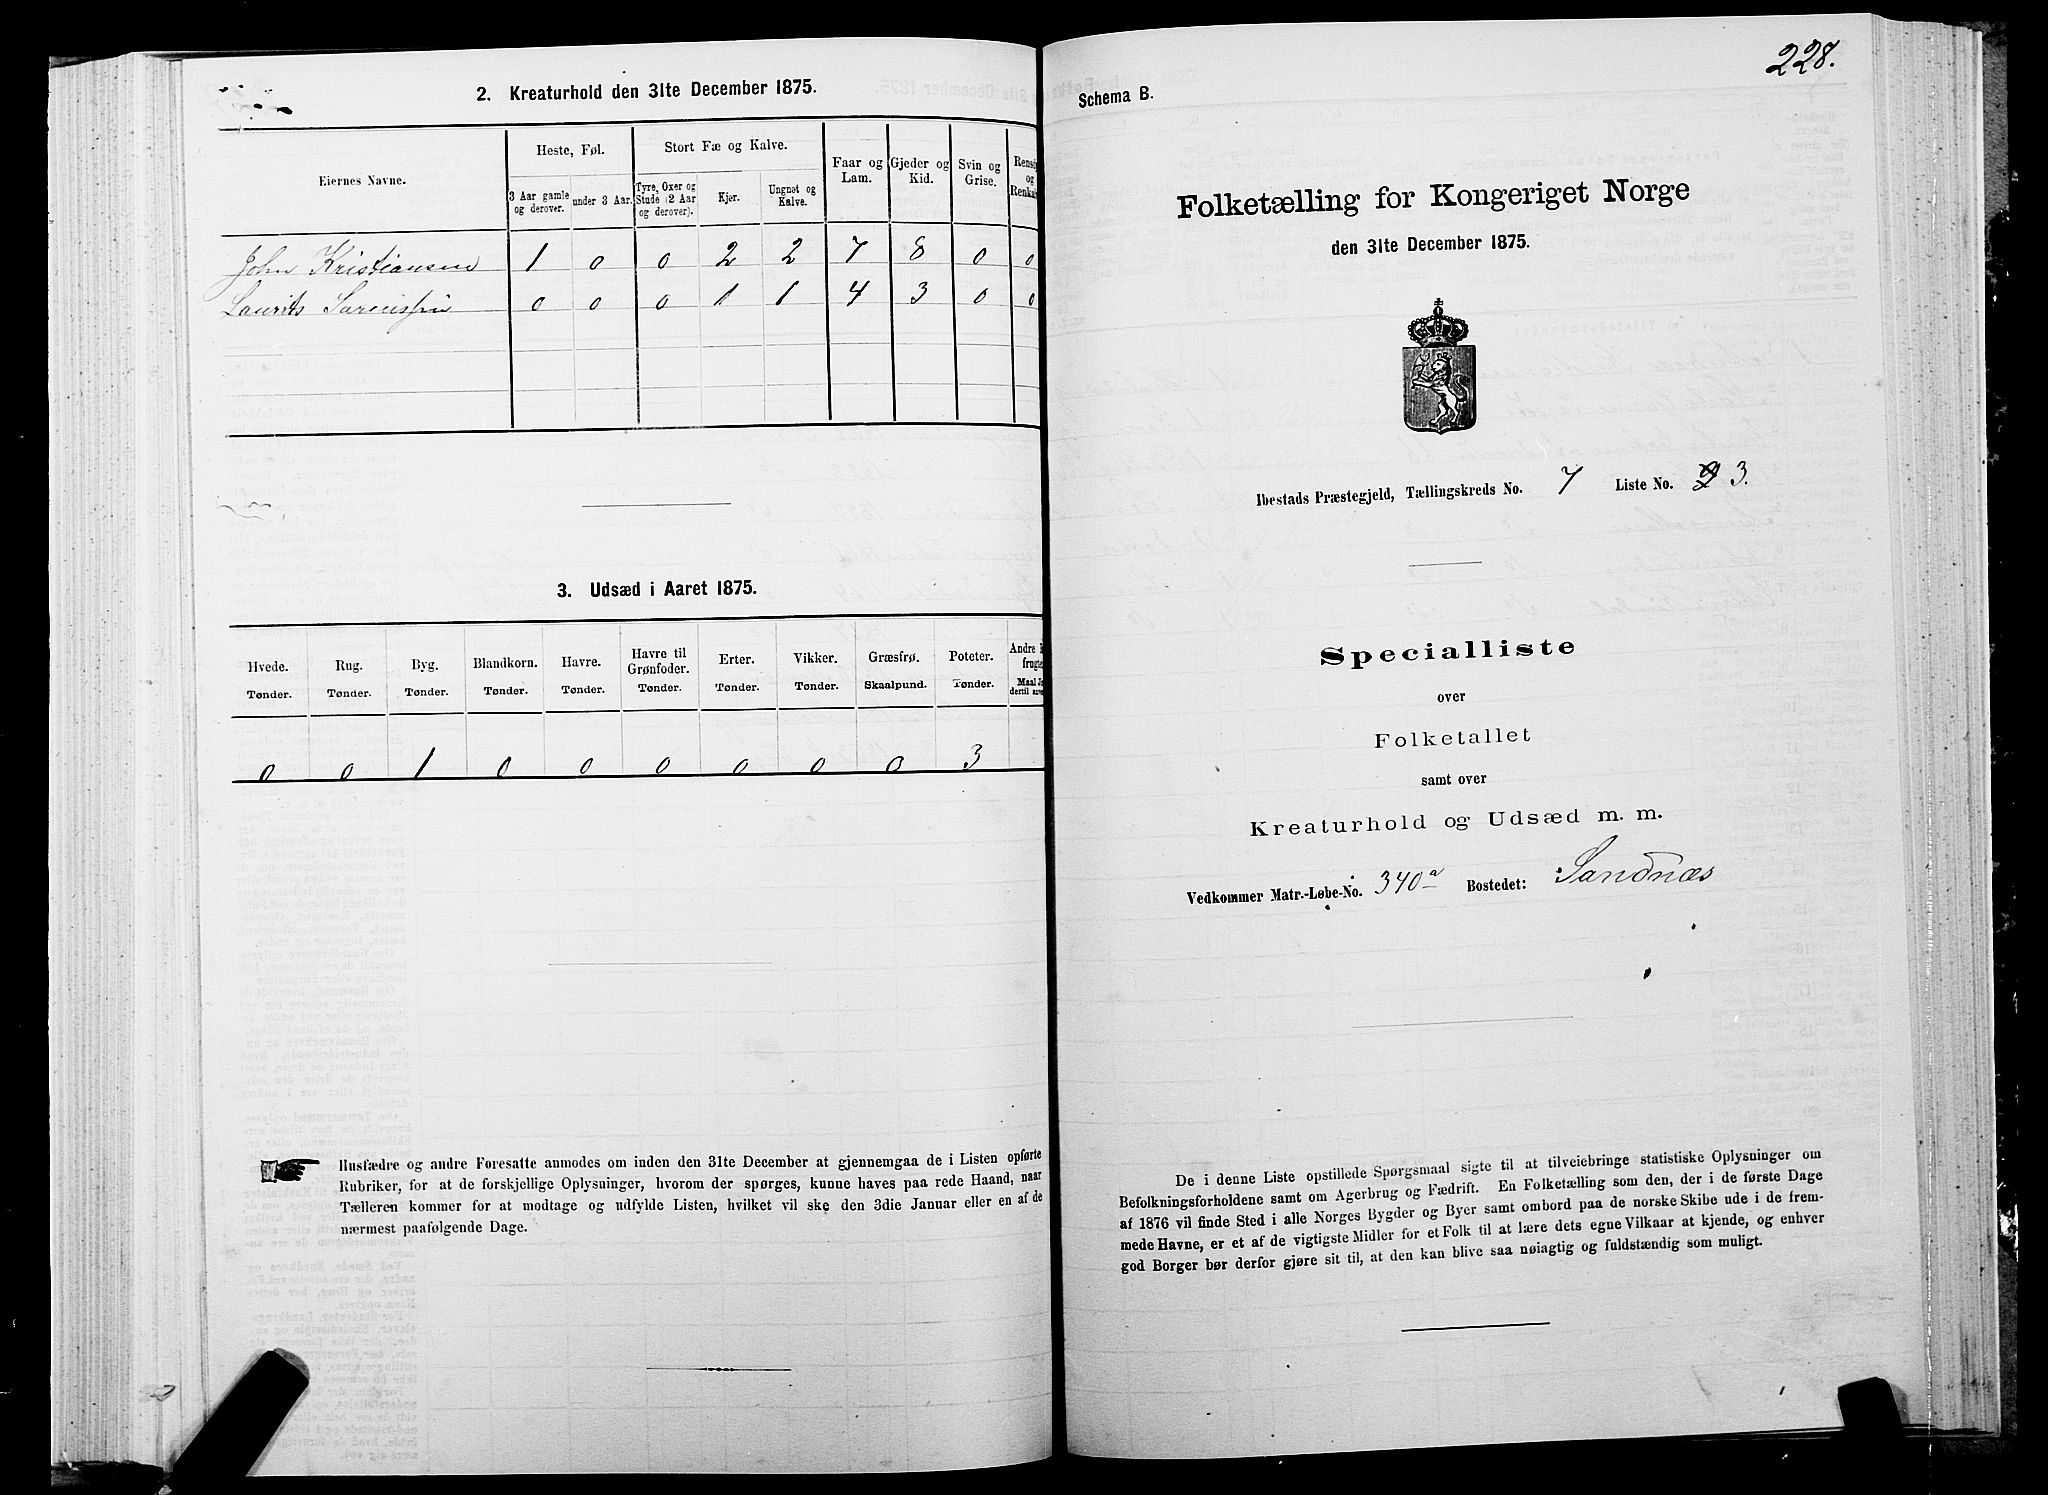 2. Kreaturhold den 31te December 1875.
Eiernes Navne.
Heste, Føl.
Stort Fæ og Kalve.
Faar og Lam.
Gjeder og Kid.
Svin og Grise.
3 Aar gamle og derover.
under 3 Aar.
Tyre, Oxer og Stude (2 Aar og derover).
Kjer.
Ungnøt og Kalve.
John Kristiansen 1 0 0 2 2 7 8 0 0
Laurits Sørensen 0 0 0 1 1 4 3 0 0
3. Udsæd i Aaret 1875.
Hvede. Rug. Byg. Blandkorn. Havre. Havre til Grønfoder. Erter. Vikker. Græsfrø. Poteter. Andre
Tønder. Tønder. Tønder. Tønder. Tønder. Tønder. Tønder. Tønder. Skaalpund. Tønder.
0 0 1 0 0 0 0 0 0 3
Husfædre og andre Foresatte anmodes om inden den 31te December at gjennemgaa de i Listen opførte
Rubriker, for at de forskjellige Oplysninger, hvorom der spørges, kunne haves paa rede Haand, naar
Tælleren kommer for at modtage og udfylde Listen, hvilket vil ske den 3die Januar eller en af de
nærmest paafølgende Dage.
228.
Schema B.
Folketælling for Kongeriget Norge
den 31te December 1875.
Ibestads Præstegjeld, Tællingskreds No. 7 Liste No. 3.
Specialliste
over
Folketallet
samt over
Kreaturhold og Udsæd m. m.
Vedkommer Matr.-Løbe-No. 340a Bostedet: Sandnæs
De i denne Liste opstillede Spørgsmaal sigte til at tilveiebringe statistiske Oplysninger om
Befolkningsforholdene samt om Agerbrug og Fædrift. En Folketælling som den, der i de første Dage
af 1876 vil finde Sted i alle Norges Bygder og Byer samt ombord paa de norske Skibe ude i de frem-
mede Havne, er et af de vigtigste Midler for et Folk til at lære dets egne Vilkaar at kjende, og enhver
god Borger bør derfor gjøre sit til, at den kan blive saa nøiagtig og fuldstændig som muligt.